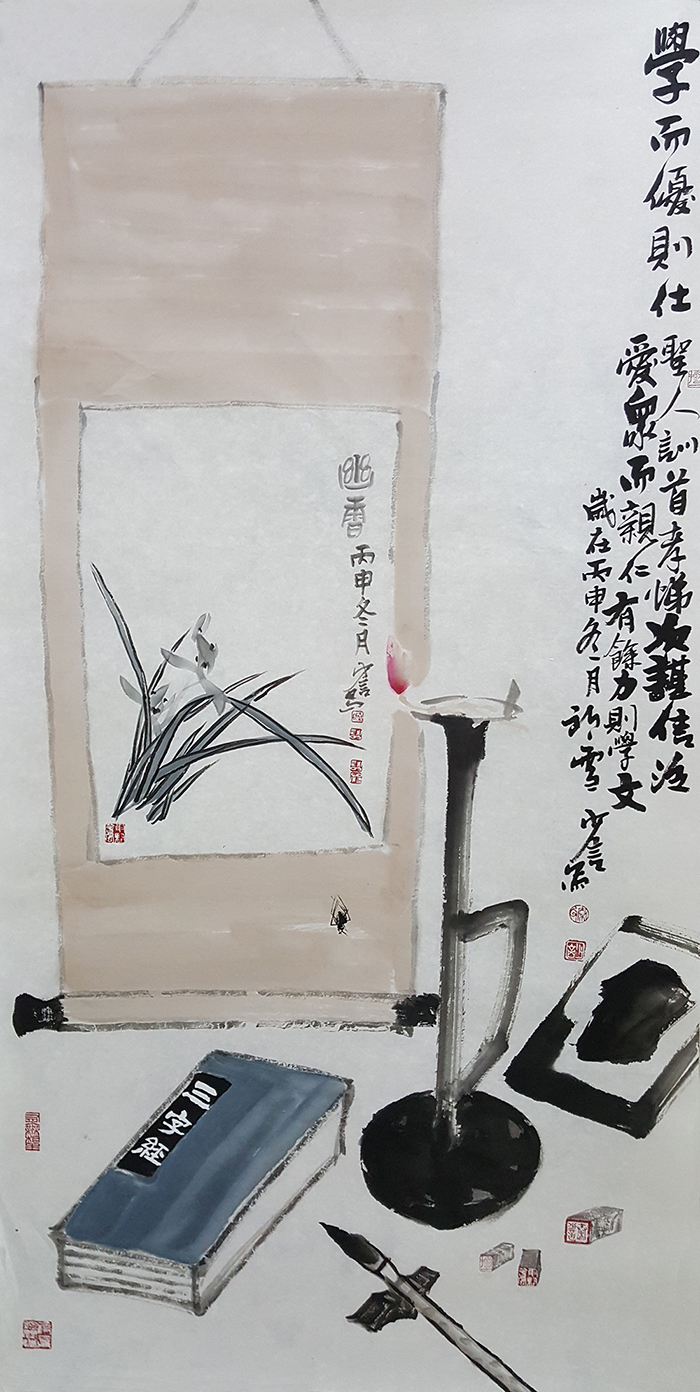 學而優則仕
聖人訓首孝悌次謹信泛
愛眾而親仁有餘力則學文
歲在丙申冬月
幽香
丙申冬月
三字経